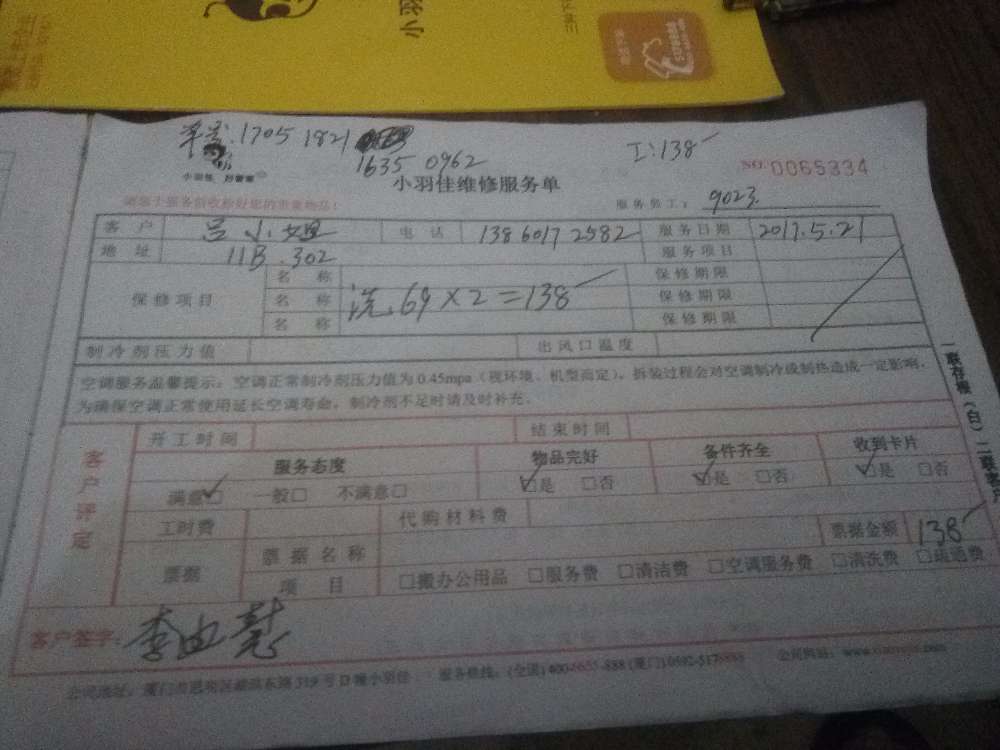 小羽
单号:1705 1821
1635 0962
工:138
NO:0065334
小羽佳 好管家
小羽佳维修服务单
服务员工: 9023
客户 吕小姐 电话 13860172582 服务日期 2017.5.21
地址 11B.302 服务项目
保修项目
名称 保修期限
名称 洗.69×2=138 保修期限
名称 保修期限
制冷剂压力值 出风口温度
空调服务温馨提示:空调正常制冷剂压力值为0.45mpa(视环境、机型而定),拆装过程会对空调制冷或制热造成一定影响,
为确保空调正常使用延长空调寿命,制冷剂不足时请及时补充。
一联存根(白)二联客户
客户评定
开工时间 结束时间
服务态度 物品完好 备件齐全 收到卡片
满意☑ 一般□ 不满意□ ☑是 □否 ☑是 □否 ☑是 □否
工时费 代购材料费 票据金额 138
票据 票据名称
项目 □搬办公用品 □服务费 □清洁费 □空调服务费 □清洗费 □疏通费
客户签字:
公司地址:厦门市思明区湖滨东路319号D幢小羽佳 服务热线:(全国)400-6655-888 公司网站: